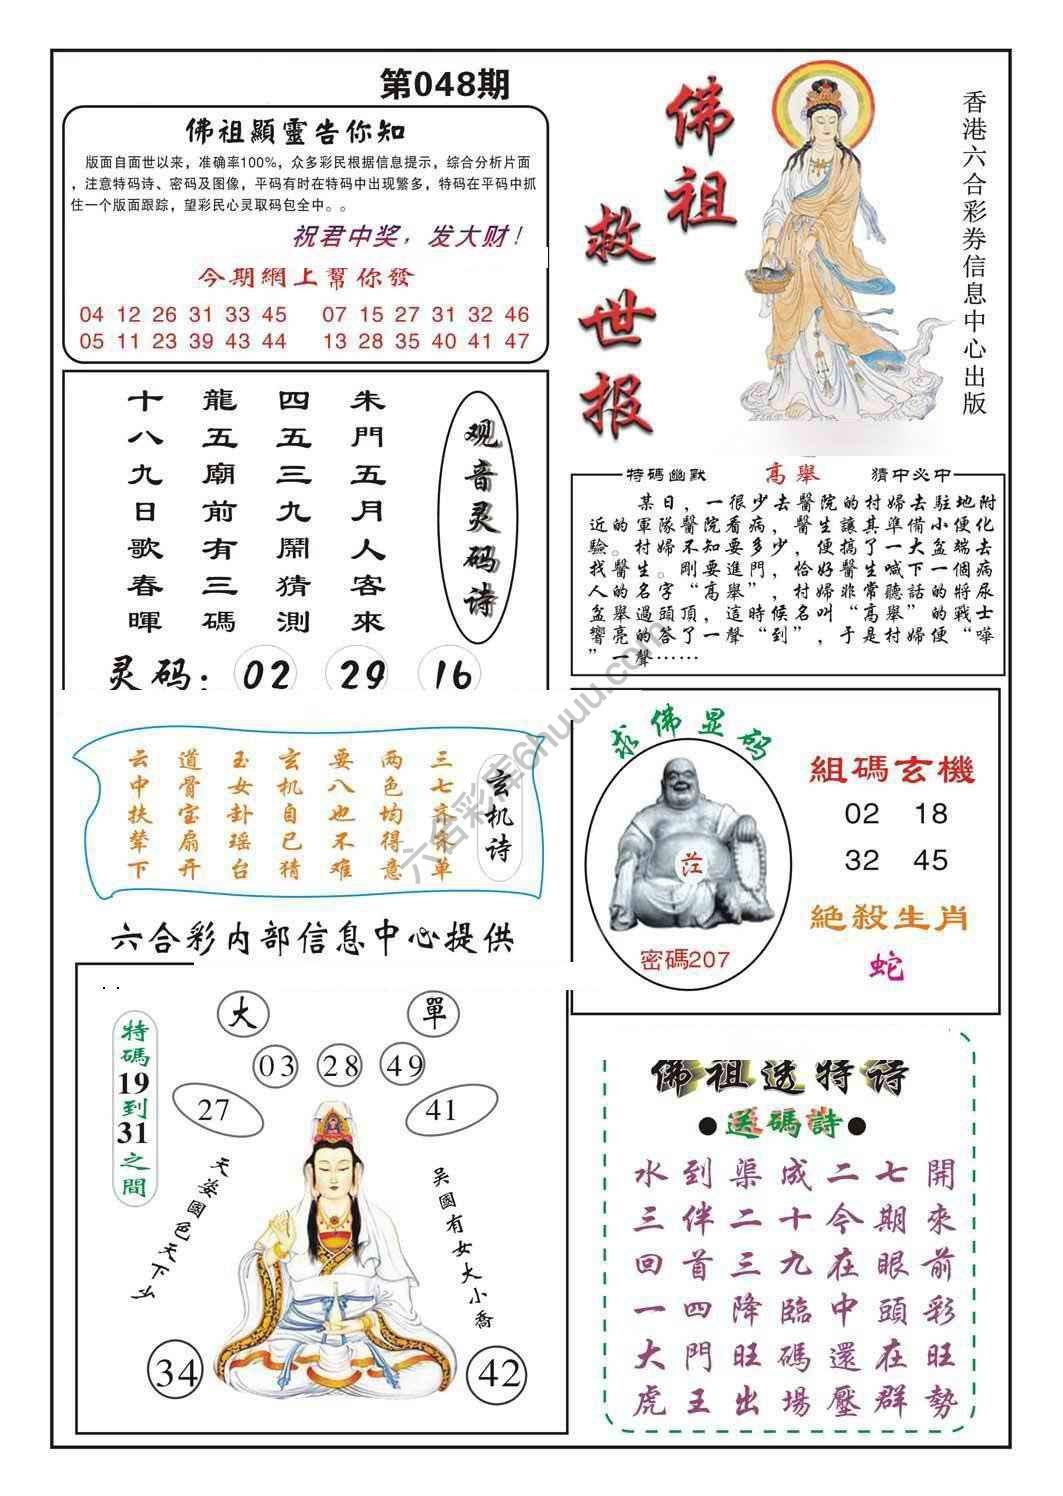 第048期
佛祖顯靈告你知
版面自面世以来，准确率100%，众多彩民根据信息提示，综合分析片面
，注意特码诗、密码及图像，平码有时在特码中出现繁多，特码在平码中抓
住一个版面跟踪，望彩民心灵取码包全中。。
祝君中奖，发大财！
今期網上幫你發
04 12 26 31 33 45 07 15 27 31 32 46
05 11 23 39 43 44 13 28 35 40 41 47
佛祖救世报
香港六合彩券信息中心出版
观音灵码诗
朱門五月人客來
四五三九鬧猜測
龍五廟前有三碼
十八九日歌春暉
灵码：02 29 16
特碼幽默 高舉 猜中必中
某日，一很少去醫院的村婦去駐地附
近的軍隊醫院看病，醫生讓其準備小便化
驗。村婦不知要多少，便搞了一大盆端去
找醫生。剛要進門，恰好醫生喊下一個病
人的名字“高舉”，村婦非常聽話的將尿
盆舉過頭頂，這時候名叫“高舉”的戰士
響亮的答了一聲“到”，于是村婦便“嘩
”一聲……
玄机诗
三七齐来单
两色均得意
要八也不难
玄机自已猜
玉女卦瑶台
道骨宝扇开
云中扶辇下
六合彩内部信息中心提供
求佛显码
茳
密碼207
組碼玄機
02 18
32 45
絕殺生肖
蛇
大 單
03 28 49
27 41
特碼19到31之間
天姿國色天下么
吴國有女大小喬
34 42
佛祖透特诗
●送碼詩●
水到渠成二七開
三伴二十今期來
回首三九在眼前
一四降臨中頭彩
大門旺碼還在旺
虎王出場壓群勢
六合彩库6huuu.com